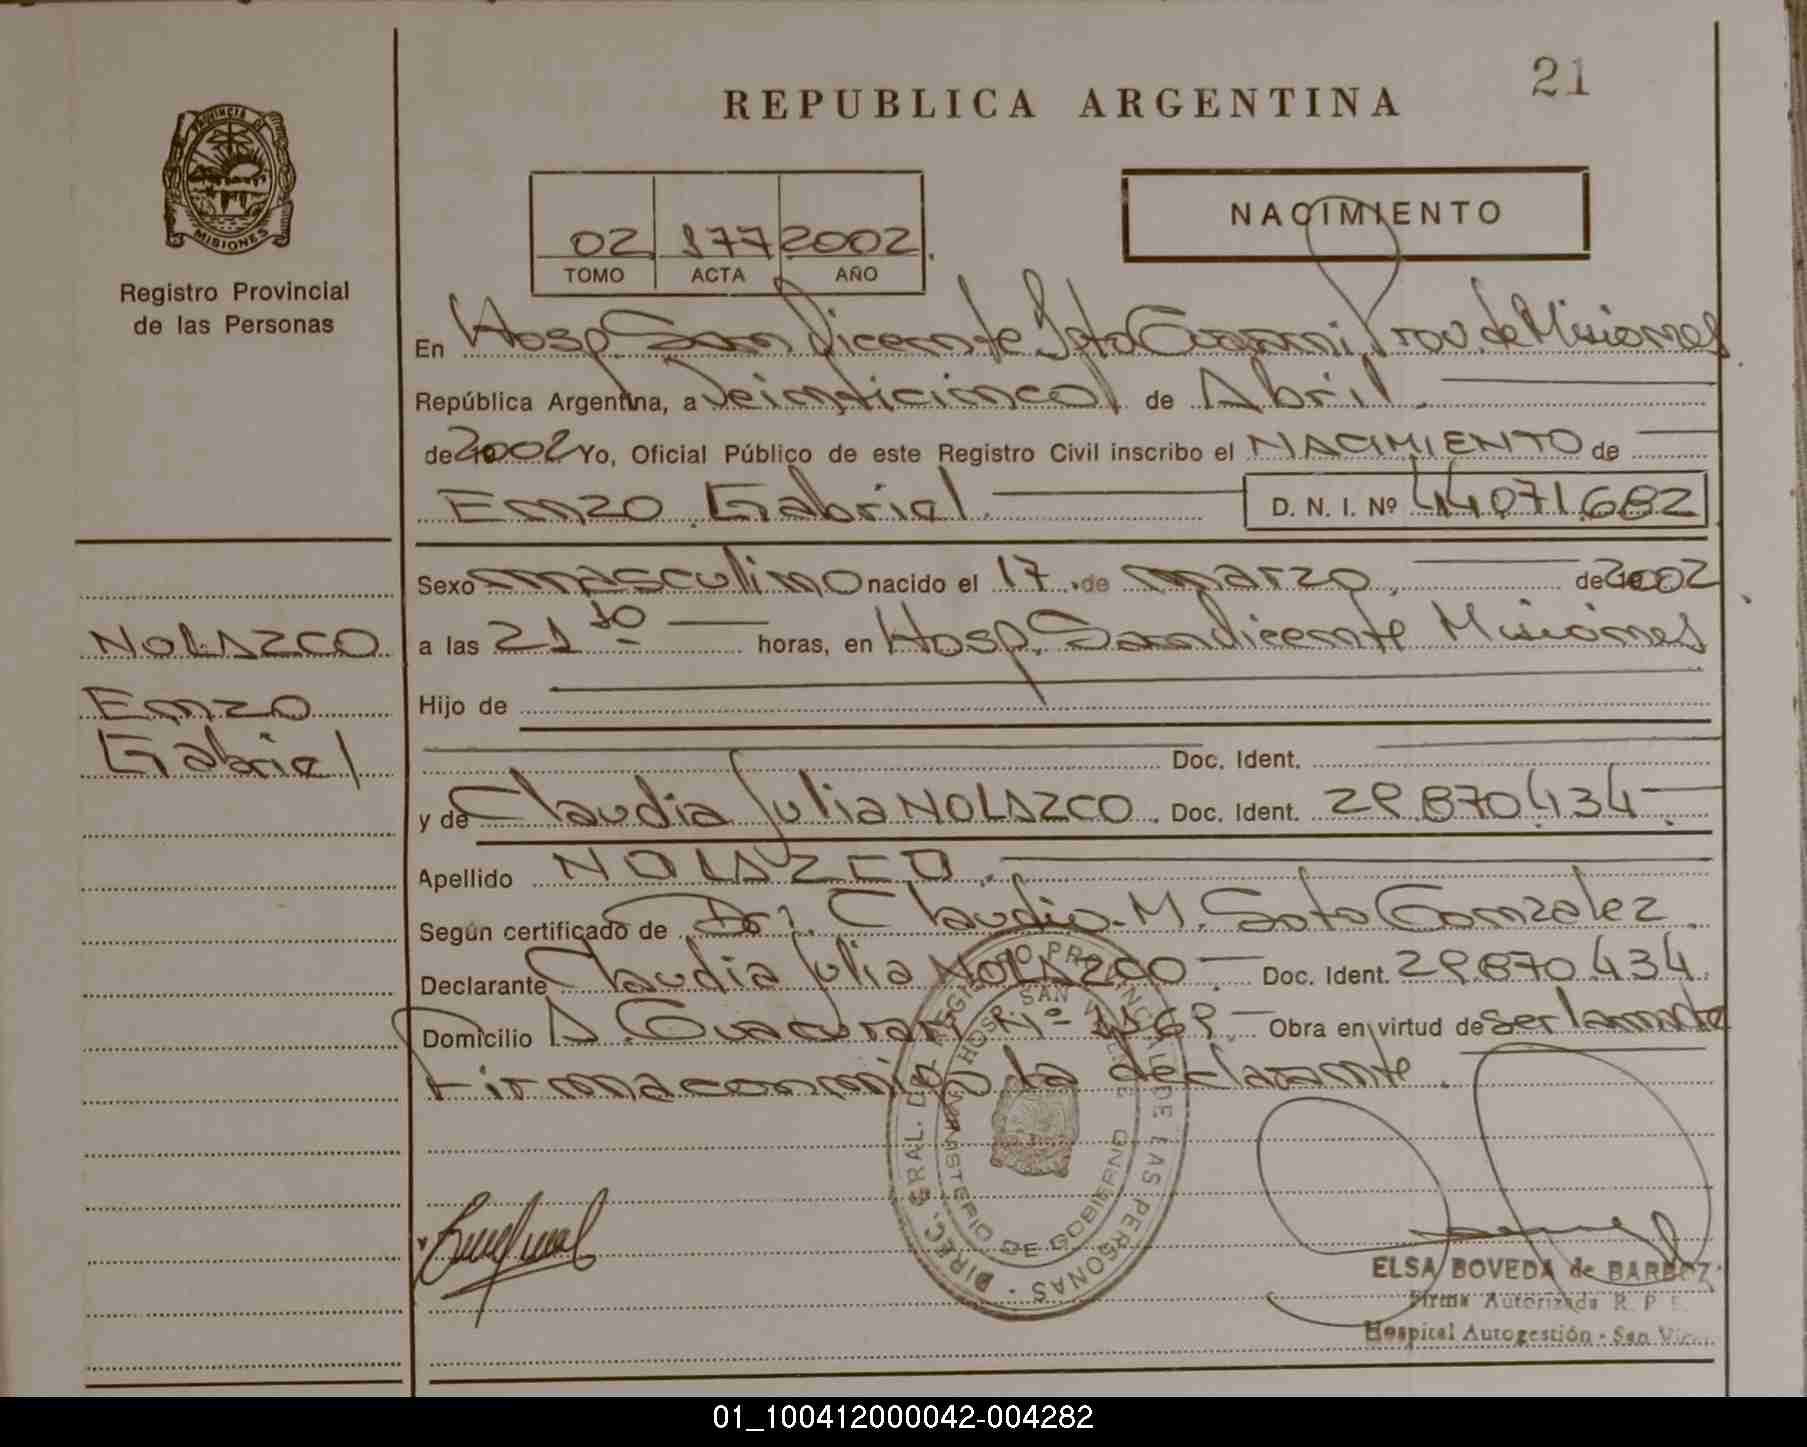 21
REPUBLICA ARGENTINA
PROVINCIA DE
MISIONES
Registro Provincial
de las Personas
02 177 2002
TOMO ACTA AÑO
NACIMIENTO
En Hosp. San Vicente Dpto Guarani Prov. de Misiones
República Argentina, a Veinticinco de Abril
de 2002 Yo, Oficial Público de este Registro Civil inscribo el NACIMIENTO de
Enzo Gabriel D. N. I. Nº 44071.682
Sexo masculino nacido el 17 de marzo de 2002
a las 21 10 horas, en Hosp. San Vicente Misiones
Hijo de
Doc. Ident.
y de Claudia Julia NOLAZCO. Doc. Ident. 29.870.434
Apellido NOLAZCO.
Según certificado de Dr. Claudio M. Soto Gonzalez
Declarante Claudia Julia NOLAZCO Doc. Ident. 29.870.434
Domicilio A. Guacurari Nº 1569 Obra en virtud de ser la madre
Firma conmigo la declarante.
NOLAZCO
Enzo
Gabriel
DIREC. GRAL. DEL REGISTRO PROVINCIAL DE LAS PERSONAS
HOSP. SAN VICENTE
MINISTERIO DE GOBIERNO
ELSA BOVEDA de BARBOZ
Firma Autorizada R. P.
Hospital Autogestión - San Vic
01_100412000042-004282